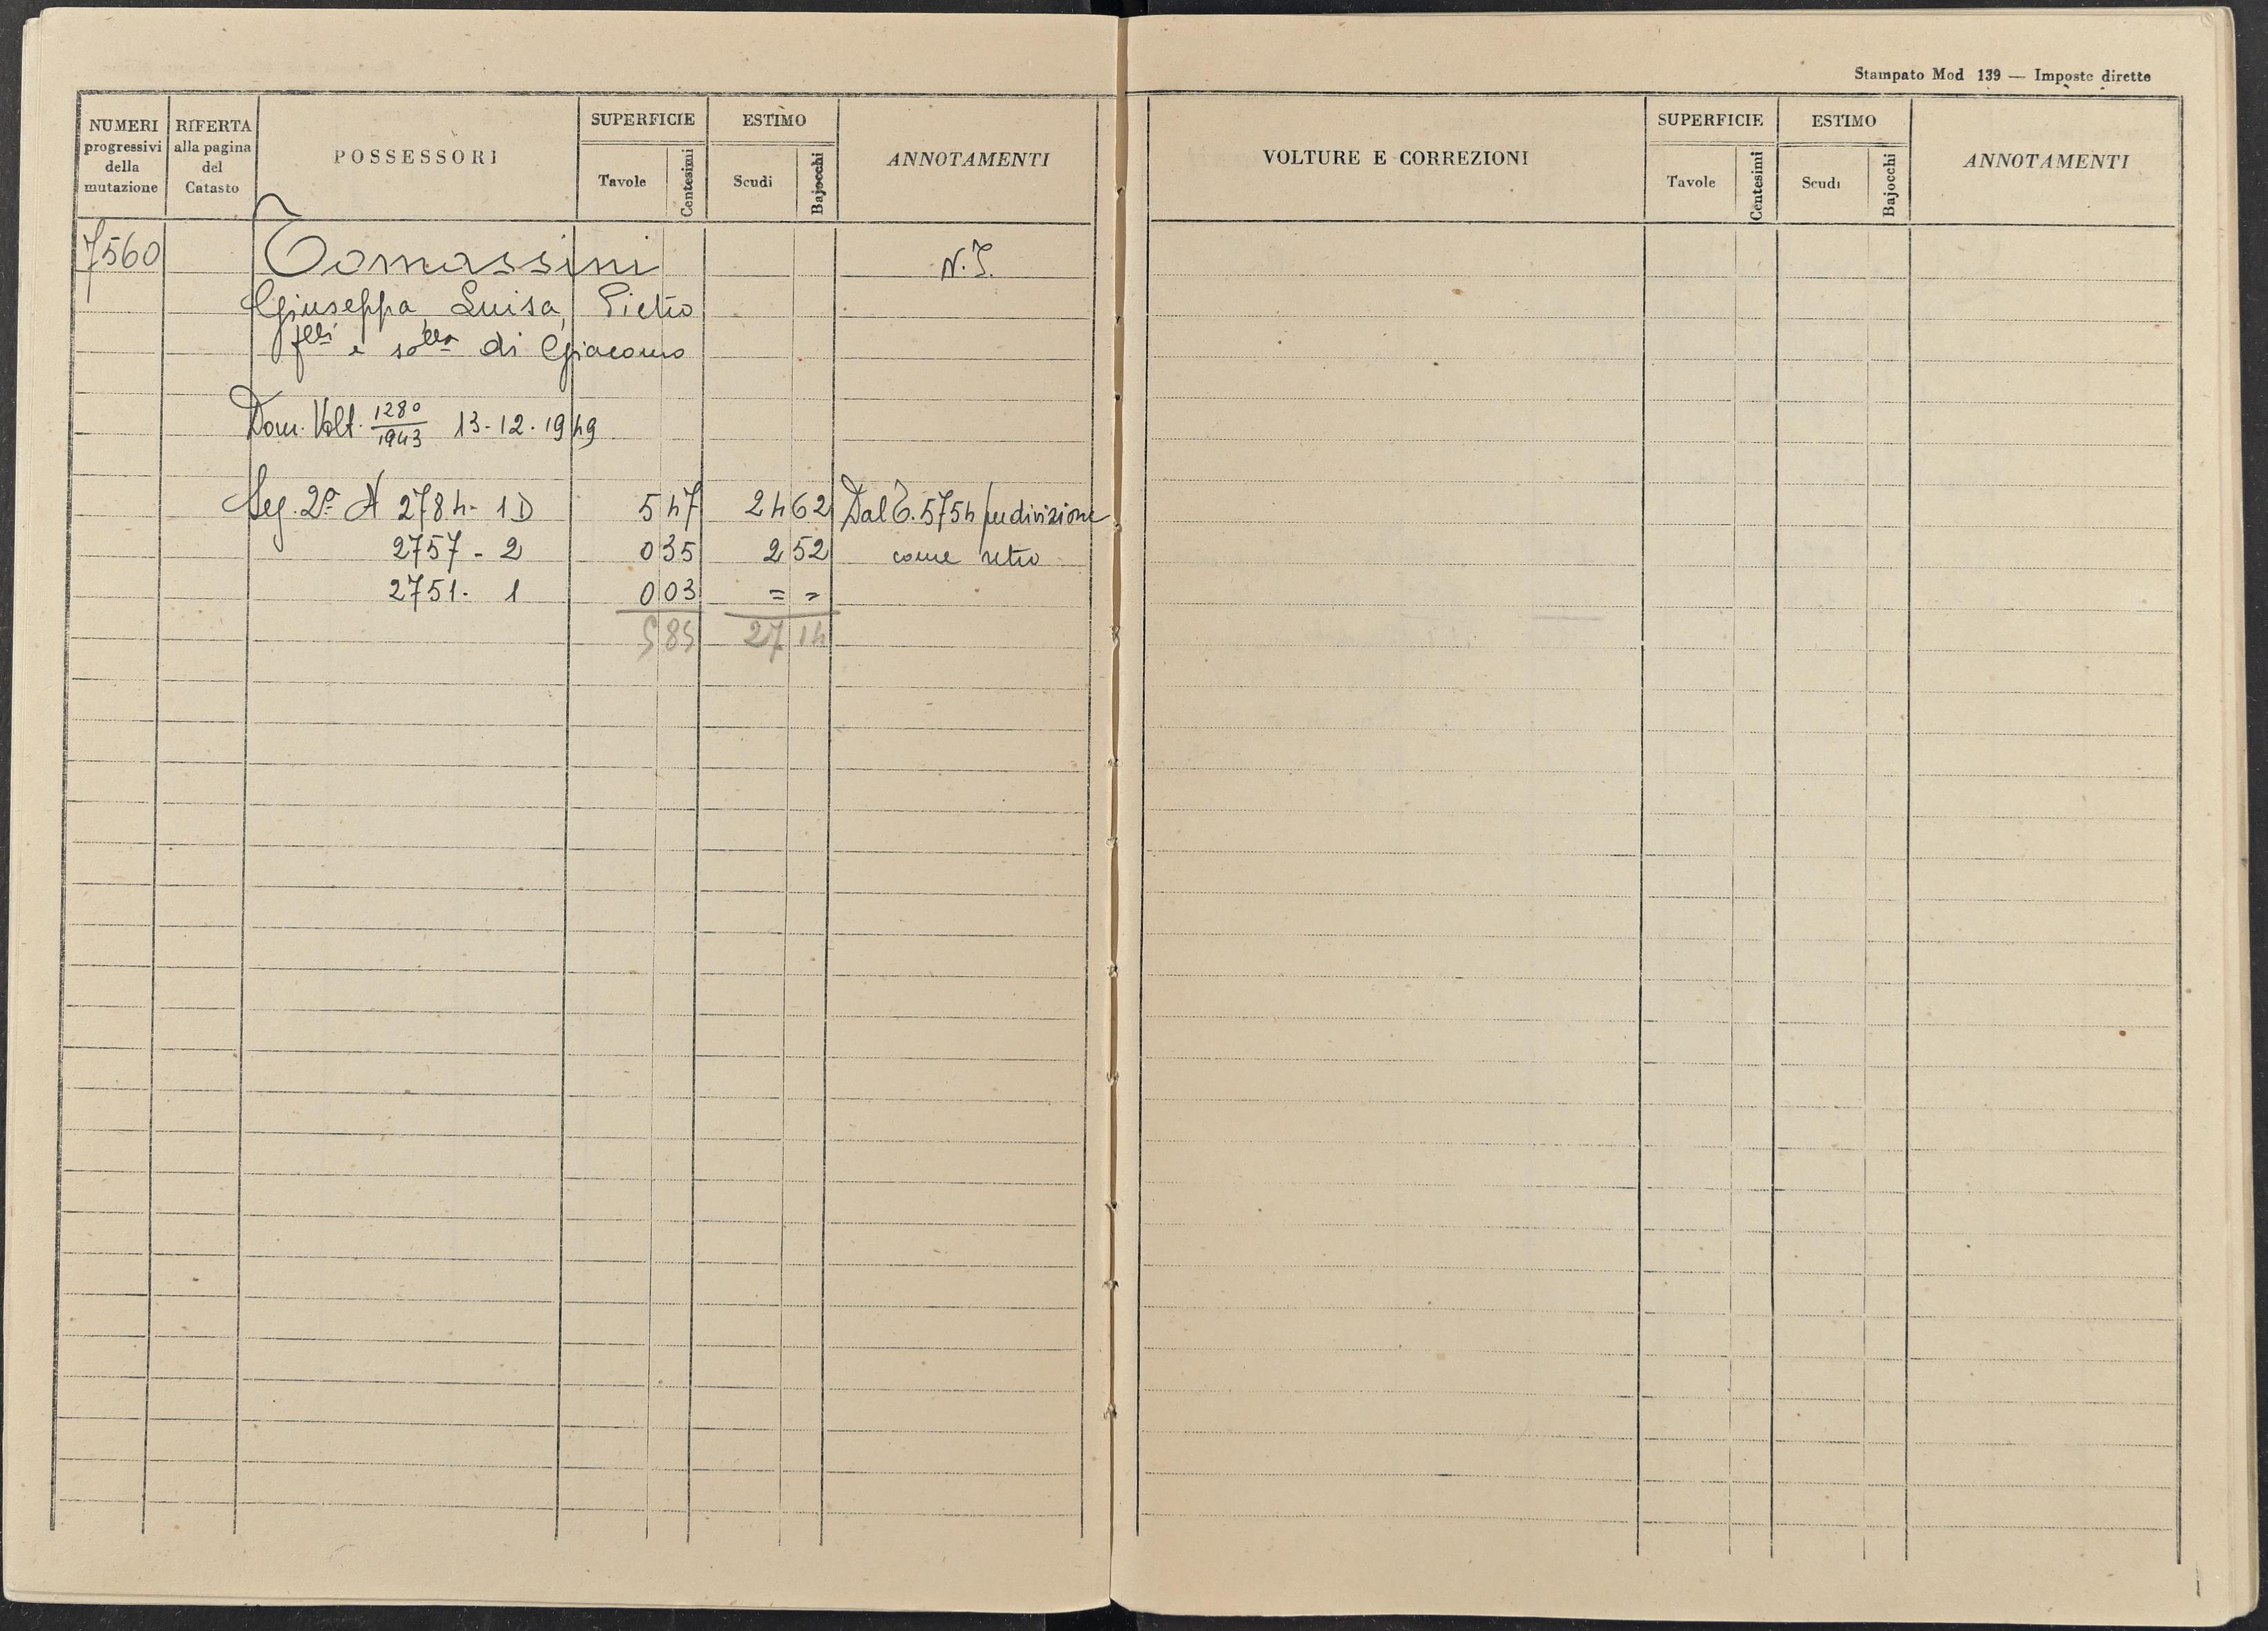 Stampato Mod 139 — Imposte dirette
NUMERI progressivi della mutazione
RIFERTA alla pagina del Catasto
POSSESSORI
SUPERFICIE
Tavole
Centesimi
ESTIMO
Scudi
Bajocchi
ANNOTAMENTI
VOLTURE E CORREZIONI
SUPERFICIE
Tavole
Centesimi
ESTIMO
Scudi
Bajocchi
ANNOTAMENTI
7560 Tomassini
Giuseppa, Luisa, Pietro
flli e slla di Giacomo
Dom. Volt. 1280/1943 13-12-1949
Seg. 2ª A 2784-1D 5 47 24 62 Dal T. 5754 per divisione
2757-2 0 35 2 52 come retro
2751-1 0 03 = =
5 85 27 14